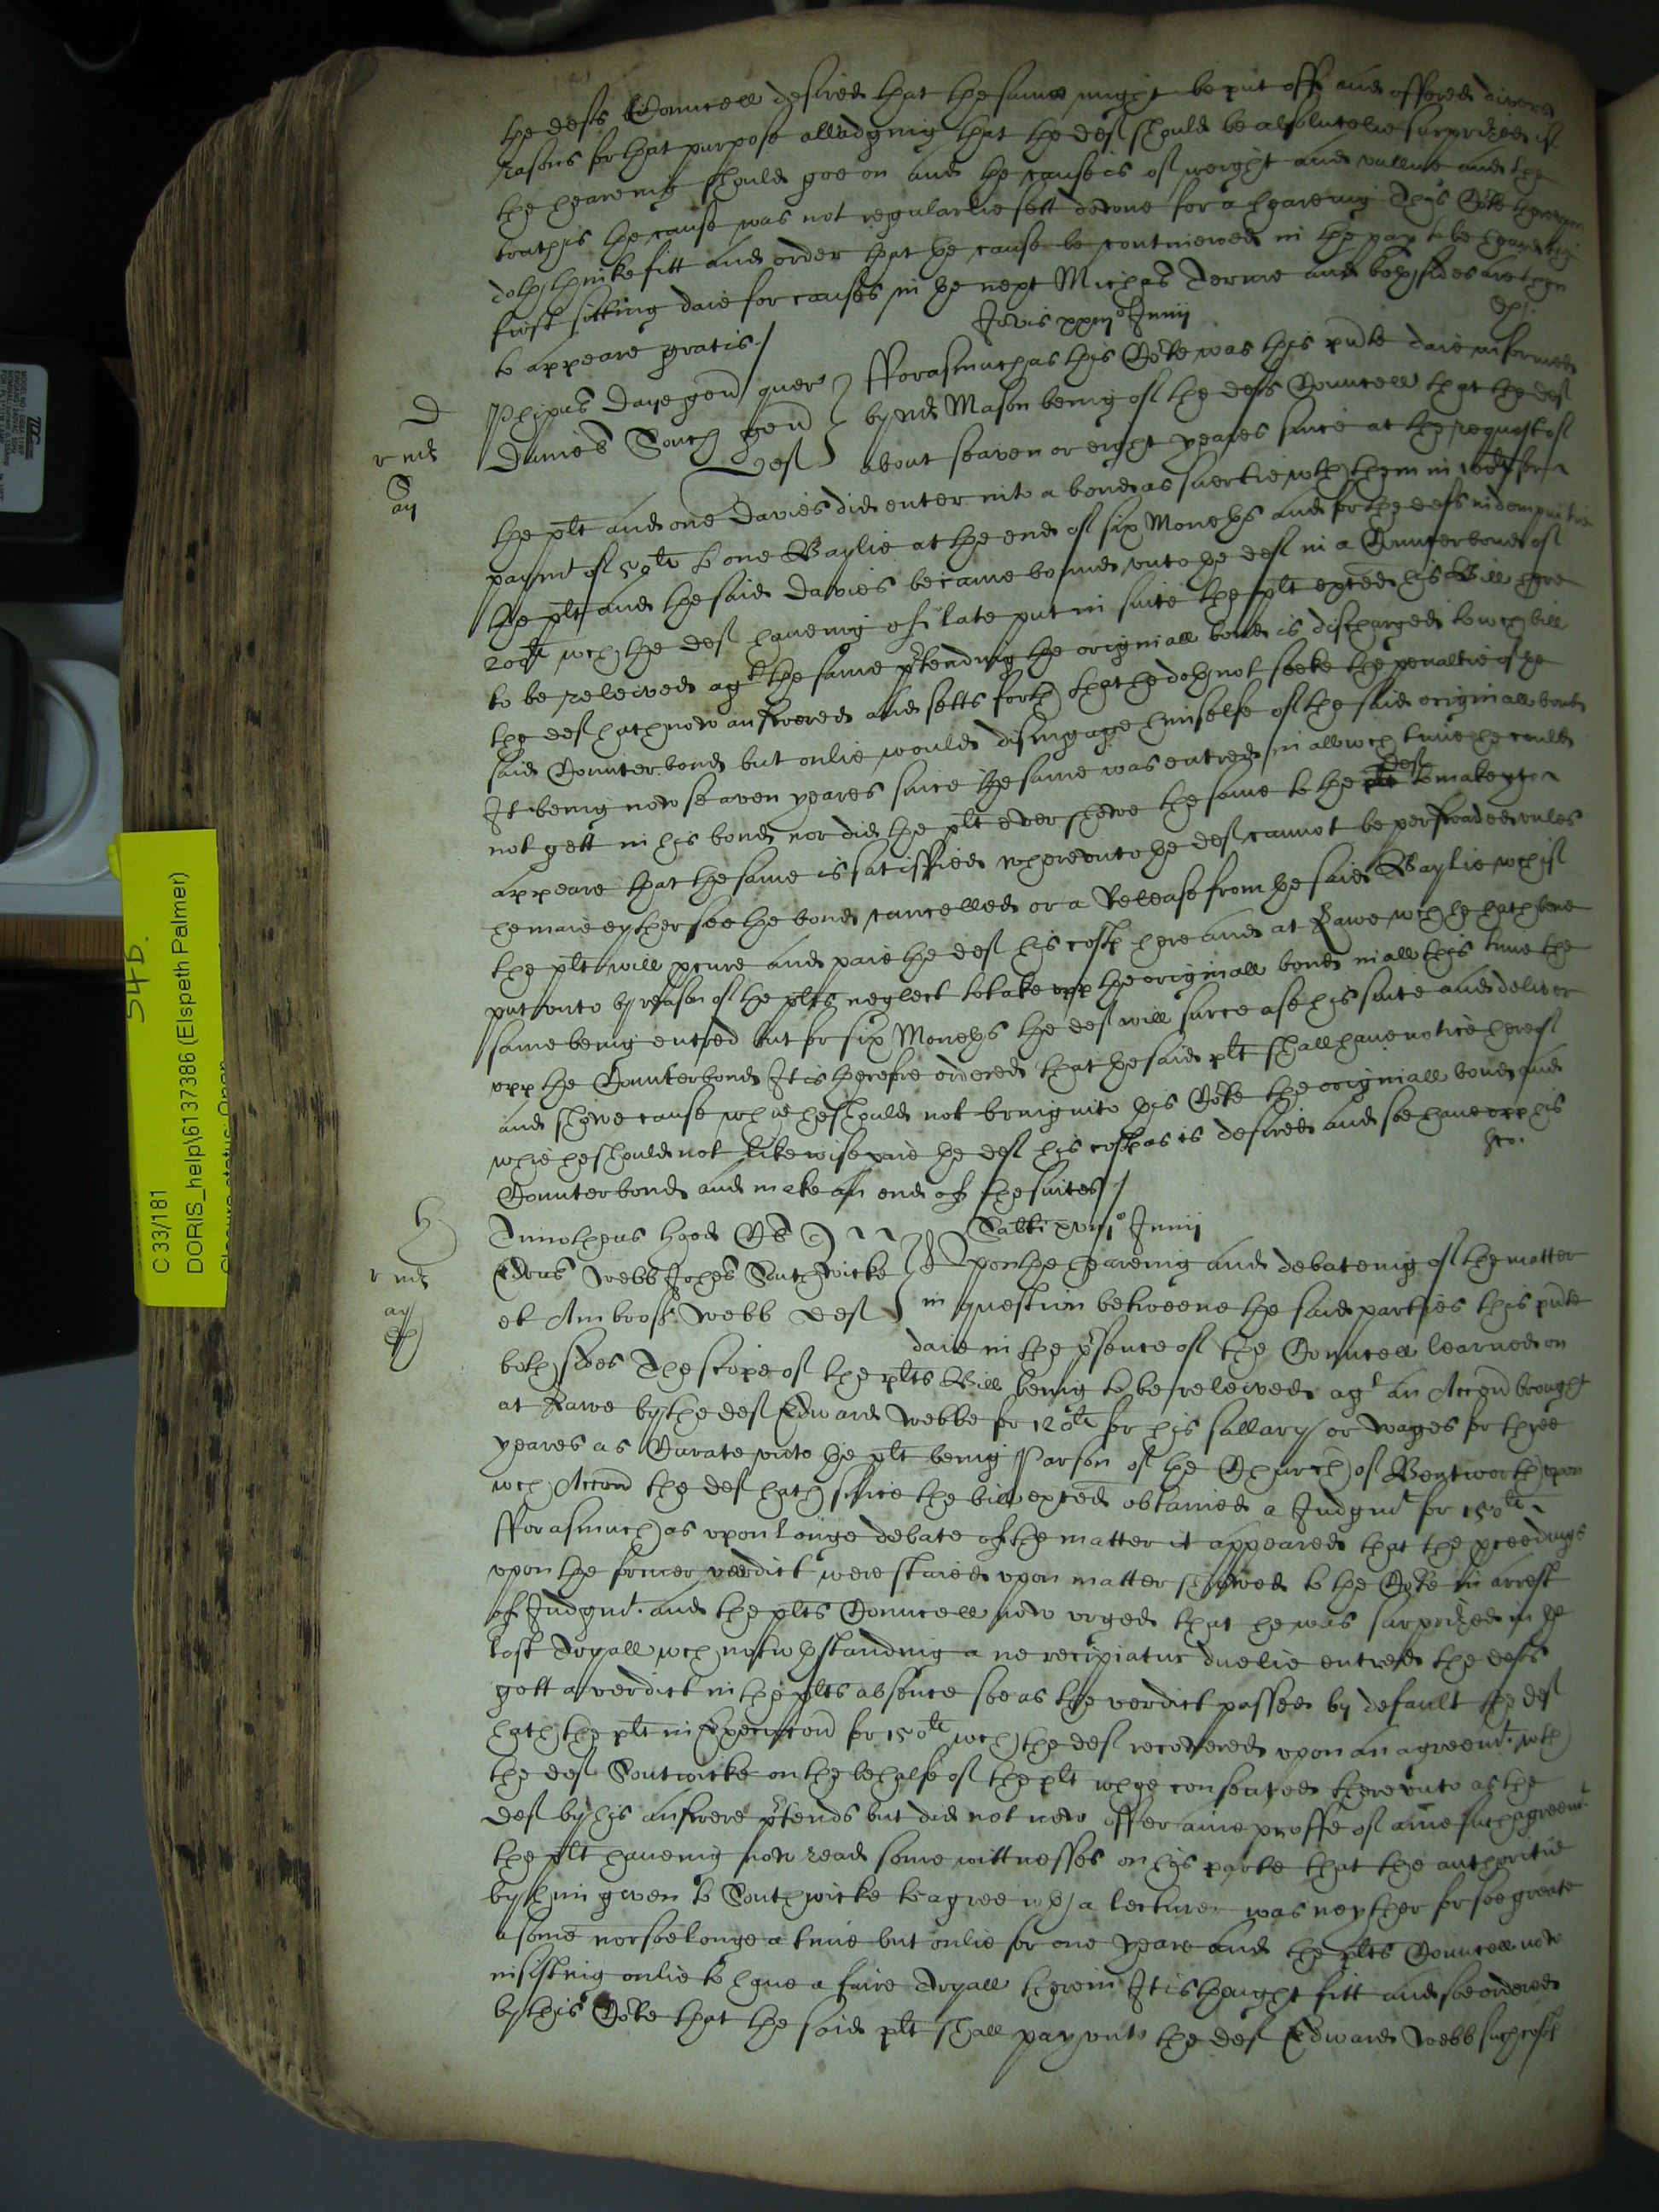 the defts Councell desired that the same might be put off and offered divers
reasons for that purpose alleadging that the deft should be absolutelie surprized if
the heareing should goe on and the cause is of weight and vallue and the
truth is the cause was not regularlie sett downe for a heareing This Cote hereupon
doth thinke fitt and order that the cause be contniewed in the pap to be heard the
first sitting daie for causes in the next Michas Terme and both sides are then
to appeare gratis /
Jovis xxiijo Junij
D
Phipus Daye gen quer
James South gen
deft
fforasmuch as this Cote was this pnte daie informed
by Mr Mason being of the defts Councell that the deft
about seaven or eight yeares since at the request of
the plt and one Davies did enter into a bond as suertie with them in for
paymt of 50li to one Baylie at the end of six Moneths and for the defts indempnitie
the plt and the said Davies became bound unto the deft in a Counterbond of
200li wch the deft haveing of late put in suite the plt exted his Bill here
to be releived agt the same ptending the originall bond is discharged to wch bill
the deft hath now answered and setts forth that he doth not seeke the penaltie of the
said Counterbond but onlie would disingage himselfe of the said originall bond
It being now seaven yeares since the same was entred in all wch time he could
not gett in his bond nor did the plt ever shewe the same to the deft to make yt
appeare that the same is satisffied whereunto the deft cannot be perswaded unles
he maie eyther see the bond cancelled or a Release from the said Baylie wch if
the plt will pcure and paie the deft his costs here and at Lawe wch he hath bene
put unto by reason of the plts neglect to take upp the originall bond in all this time the
same being entred but for six Moneths the deft will surcease his suite and deliver
upp the Counterbond It is therefore ordered that the said plt shall have notice hereof
and shewe cause whie he should not bring into this Cote the originall bond and
whie he should not likewise paie the deft his costs as is desired and soe have upp his
Counterbond and make an end of the suites /
Sabti xviijo Junij
H
Timotheus Hood Cls
Edrus Webb Johes Southwicke
et Ambros Webb deft
Upon the heareing and debateing of the matter
in question betweene the said parties this pnte
daie in the psence of the Councell learned on
both sides The scope of the plts Bill being to be releived agt an Accon brought
at Lawe by the deft Edward Webbe for 120li for his sallary or wages for three
yeares as Curate unto the plt being Parson of the Church of Bentworth upon
wch Accon the deft hath since the bill exted obtained a Judgmt for 150li
fforasmuch as upon longe debate of the matter it appeared that the pceedings
upon the former verdict were staied upon matter shewed to the Cote in arrest
of Judgmt. and the plts Councell now urged that he was surprized in the
last Tryall wch notwthstanding a ne recipiatur duelie entred the defts
gott a verdict in the plts absence soe as the verdict passed by default the deft
hath the plt in Execucon for 150li wch the deft recovered upon an agreemt. wth
the deft Soutwicke on the behalfe of the plt whoe consented thereunto as the
deft by his answere ptends but did not now offer anie proffe of anie such agreemt
the plt haveing now read some wittnesses on his parte that the authoritie
by him given to Southwicke to agree wth a lecturer was neyther for soe greate
a some nor soe longe a time but onlie for one yeare and the plts Councell now
insisting onlie to have a faire Tryall therein It is thought fitt and soe ordered
by this Cote that the said plt shall pay unto the deft Edward Webb such costs
C 33/181
DORIS_help\6137386 (Elspeth Palmer)